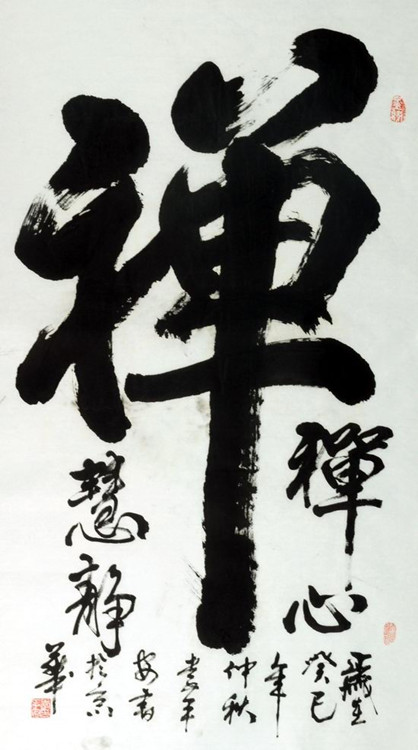 禅
禪心
慧静
歲在
癸巳
年
仲秋
於京
華